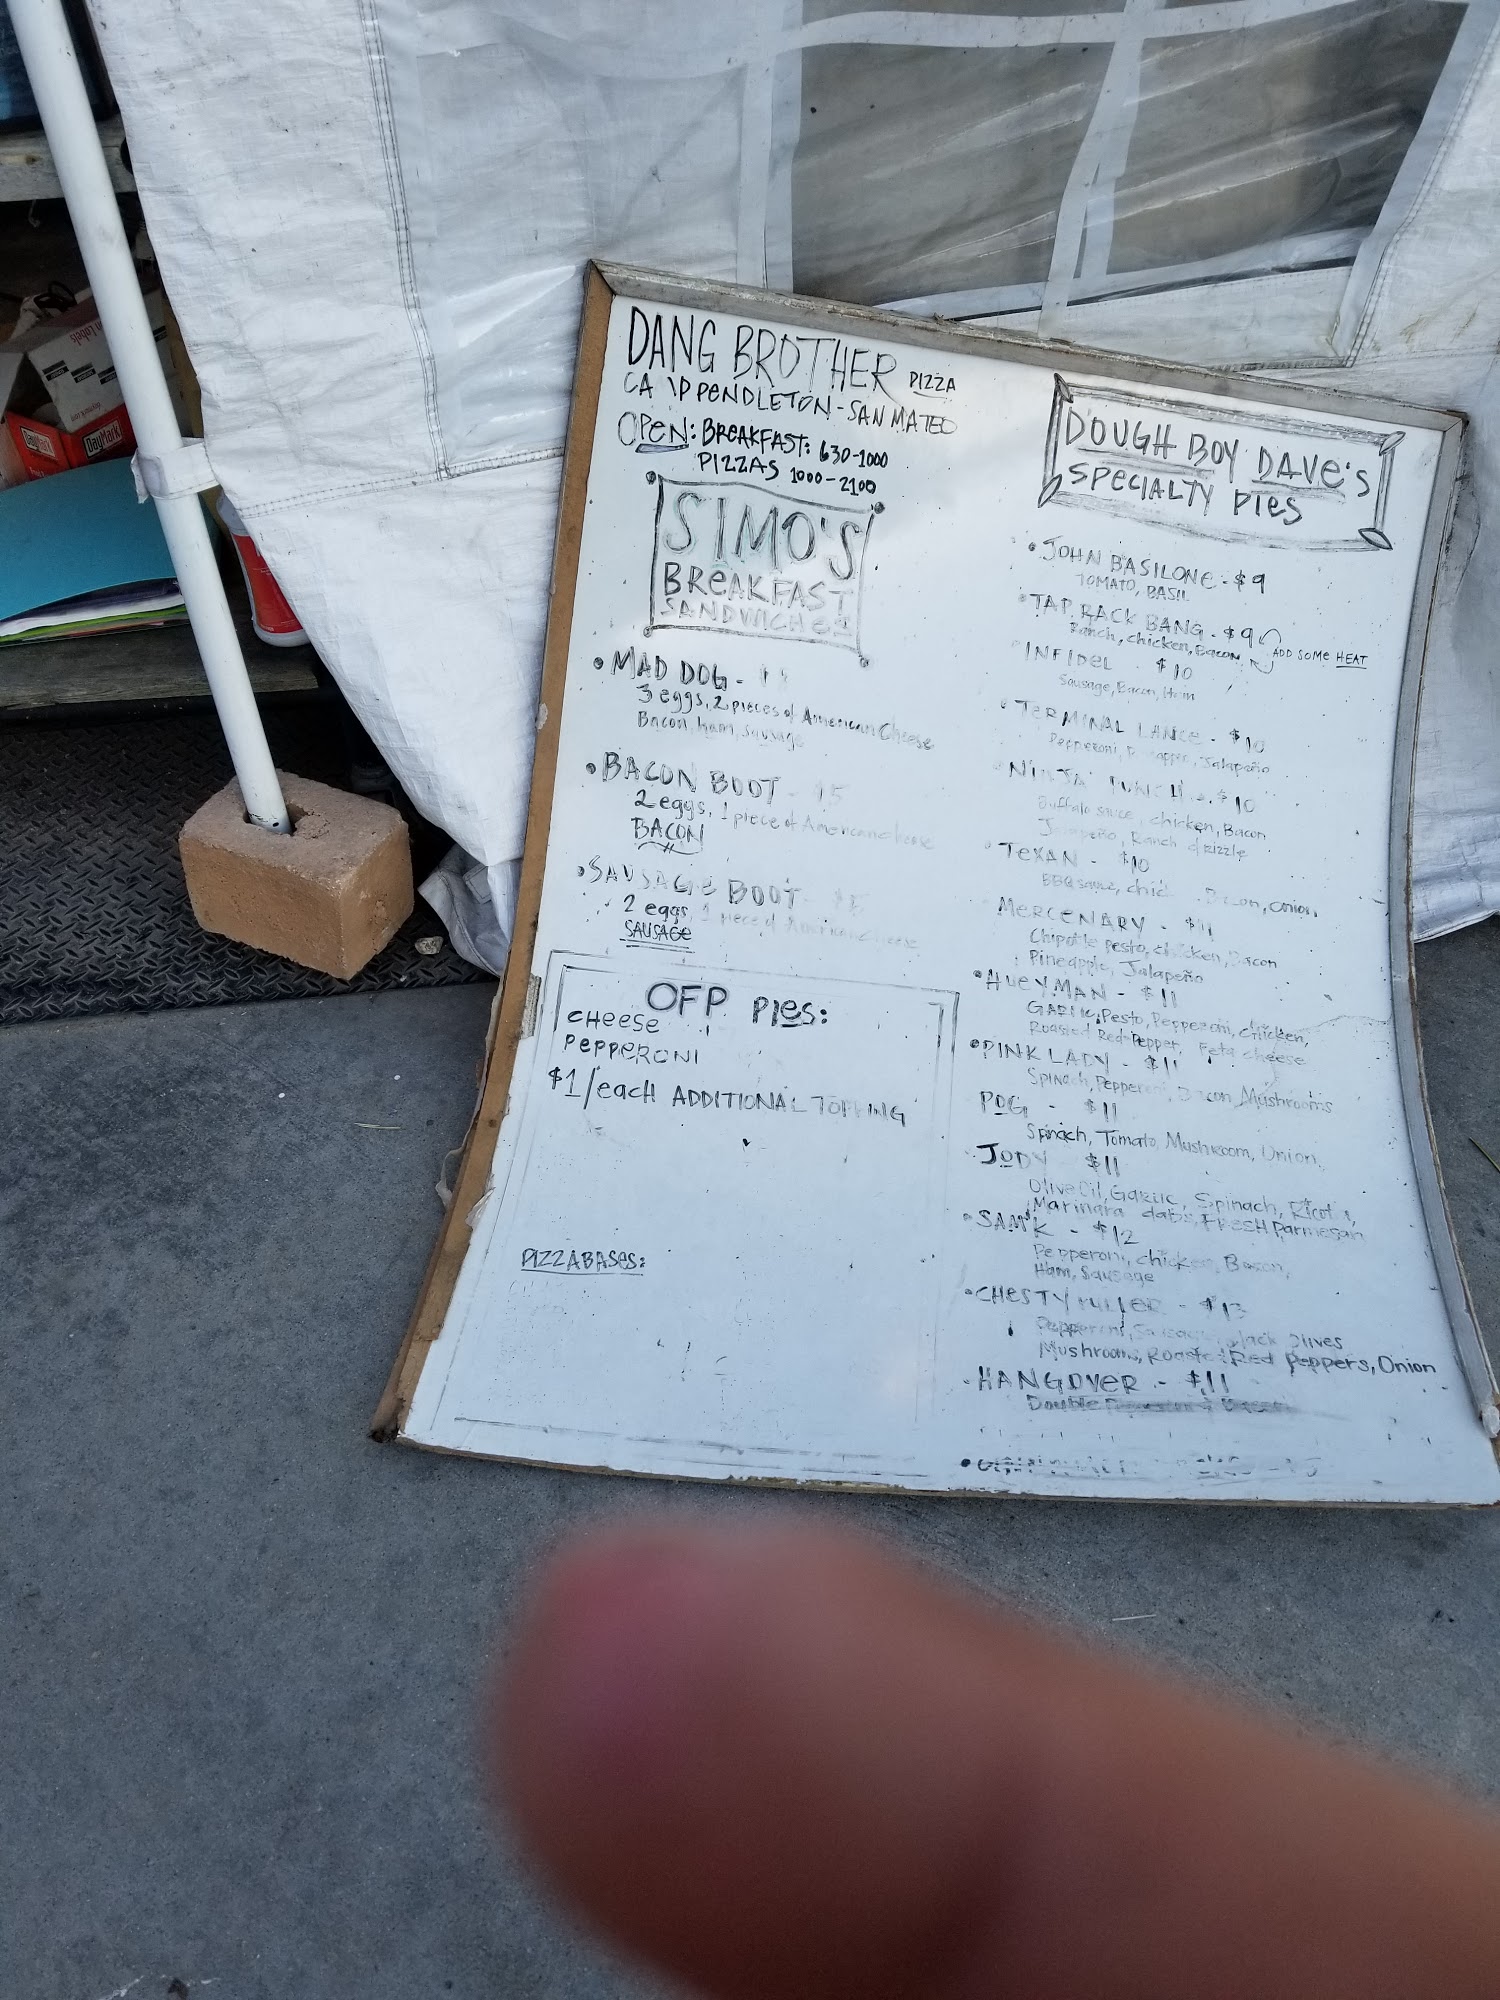 DayMark
DayMark
DANG BROTHER PIZZA
PENDLETON - SAN MATEO
OPEN: BREAKFAST: 630-1000
PIZZAS 1000-2100
SIMO'S
BREAKFAST
SANDWICHES
• MAD DOG -
3 eggs, 2 pieces of American Cheese
Bacon, ham, sausage
• BACON BOOT -
2 eggs, 1 piece of American cheese
BACON
• SAUSAGE BOOT -
2 eggs, 1 piece of American cheese
SAUSAGE
OFP PIes:
CHeese
PePPeRONI
$1/eacH ADDITIONAL TOPPING
PIZZA BASes:
DOUGH BOY DAVe's
SPECIALTY PIes
• JOHN BASILONE - $9
TOMATO, BASIL
• TAP RACK BANG - $9
Ranch, chicken, Bacon
ADD SOMe HEAT
• INFIDeL - $10
Sausage, Bacon, Ham
• TeRMINAL LANCE - $10
Pepperoni, Jalapeño
• NINJA PUNCH - $10
Buffalo sauce, chicken, Bacon
Jalapeño, Ranch drizzle
• TeXAN - $10
BBQ sauce, Bacon, onion
MeRCENARY - $11
Chipotle pesto, chicken, Bacon
Pineapple, Jalapeño
• HUeY MAN - $11
GARLIC, Pesto, Pepperoni, chicken,
Roasted Red Pepper, Feta cheese
• PINK LADY - $11
Spinach, Pepperoni, Bacon Mushrooms
POG - $11
Spinach, Tomato, Mushroom, Onion
• JODY $11
Olive Oil, Garlic, Spinach, Ricotta,
Marinara dabs, FRESH Parmesan
• SAM'K - $12
Pepperoni, chicken, Bacon,
Ham, Sausage
• CHESTY PULLER - $13
Pepperoni, Sausage, Black Olives
Mushrooms, Roasted Red Peppers, Onion
• HANGOVER - $11
Double